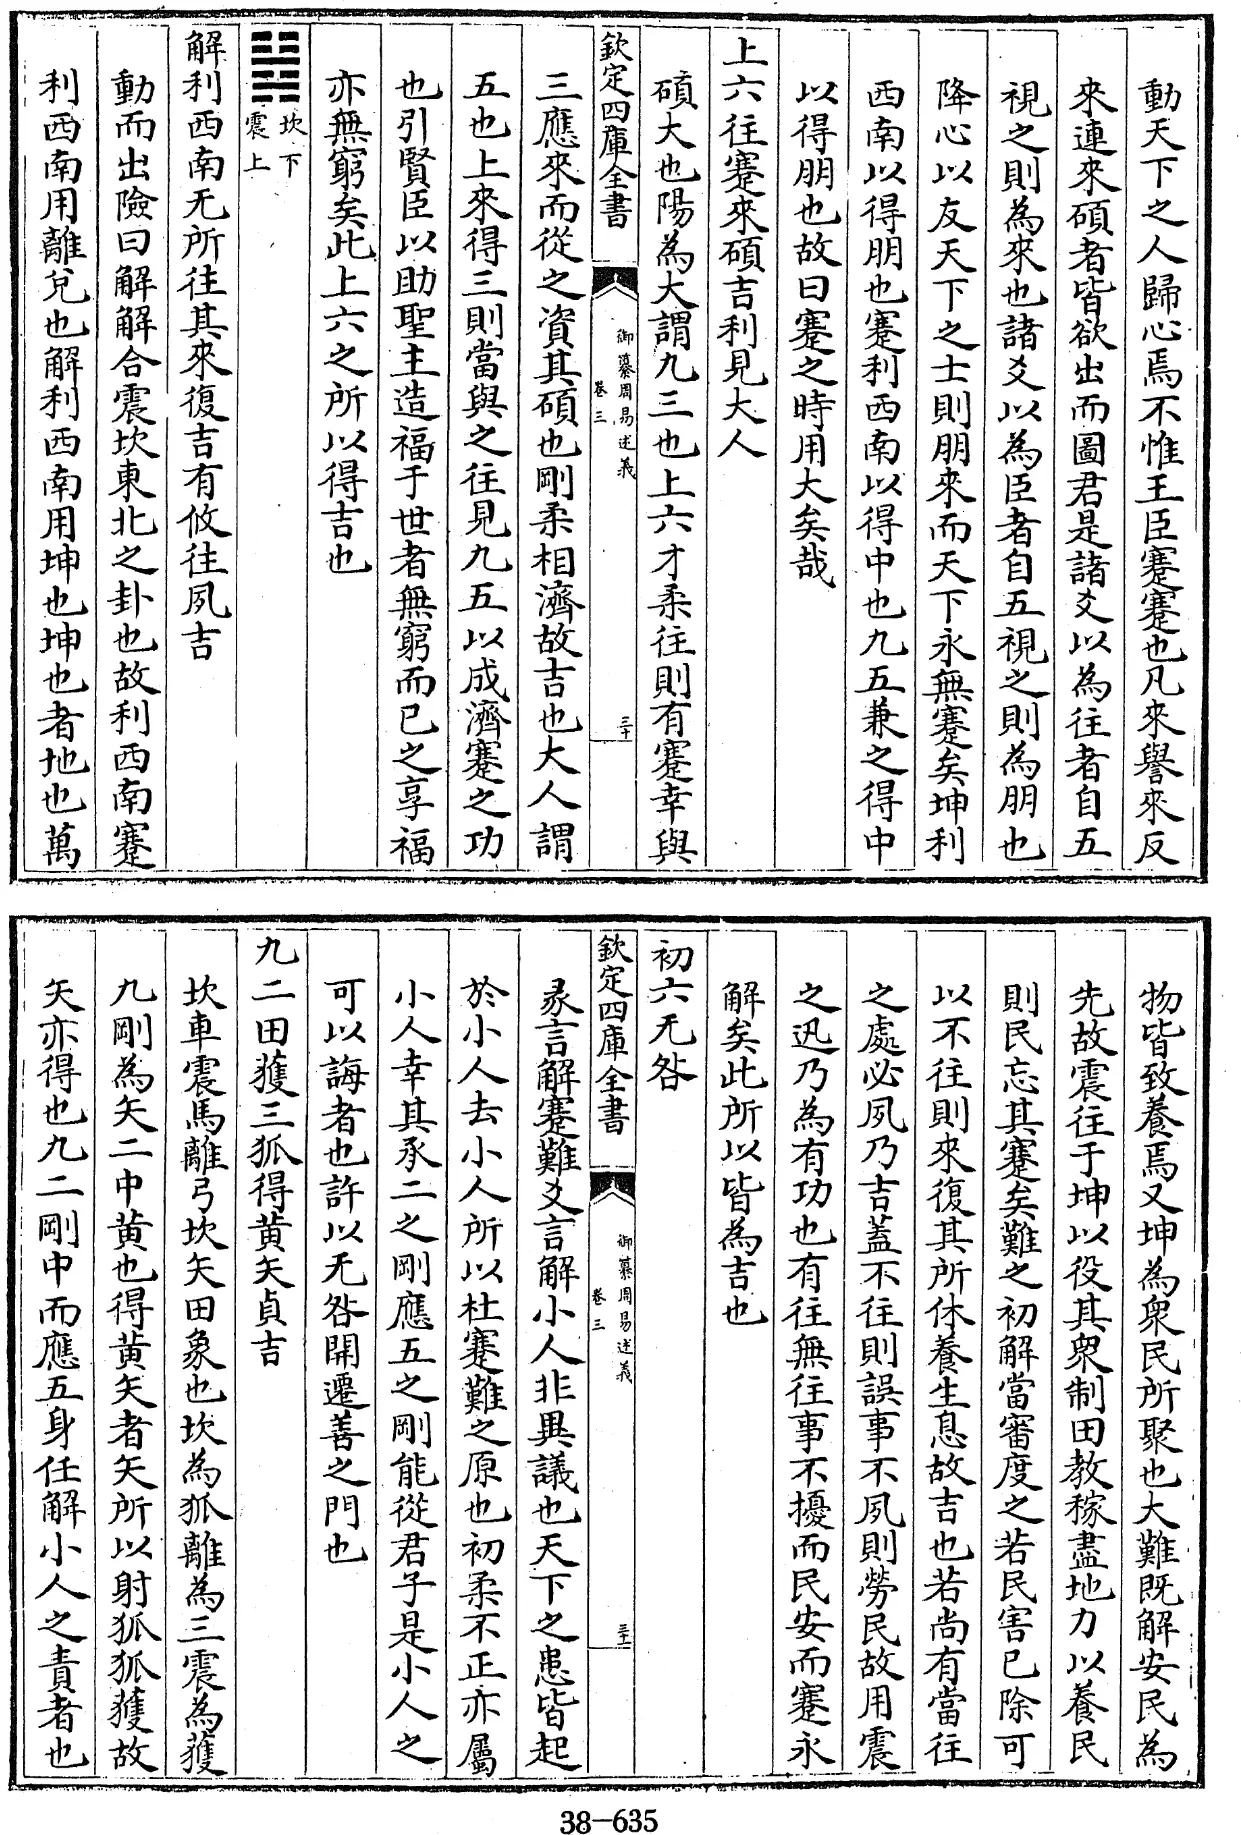 動天下之人歸心焉不惟王臣蹇蹇也凡來譽來反
來連來碩者皆欲出而圖君是諸爻以為往者自五
視之則為來也諸爻以為臣者自五視之則為朋也
降心以友天下之士則朋來而天下永無蹇矣坤利
西南以得朋也蹇利西南以得中也九五兼之得中
以得朋也故曰蹇之時用大矣哉
上六往蹇來碩吉利見大人
碩大也陽為大謂九三也上六才柔往則有蹇幸與
欽定四庫全書
御纂周易述義
卷三
三十
三應來而從之資其碩也剛柔相濟故吉也大人謂
五也上來得三則當與之往見九五以成濟蹇之功
也引賢臣以助聖主造福于世者無窮而已之享福
亦無窮矣此上六之所以得吉也
坎下
震上
解利西南无所往其來復吉有攸往夙吉
動而出險曰解解合震坎東北之卦也故利西南蹇
利西南用離兌也解利西南用坤也坤也者地也萬
物皆致養焉又坤為衆民所聚也大難既解安民為
先故震往于坤以役其衆制田教稼盡地力以養民
則民忘其蹇矣難之初解當審度之若民害已除可
以不往則來復其所休養生息故吉也若尚有當往
之處必夙乃吉蓋不往則誤事不夙則勞民故用震
之迅乃為有功也有往無往事不擾而民安而蹇永
解矣此所以皆為吉也
初六无咎
欽定四庫全書
御纂周易述義
卷三
三十一
彖言解蹇難爻言解小人非異議也天下之患皆起
於小人去小人所以杜蹇難之原也初柔不正亦屬
小人幸其承二之剛應五之剛能從君子是小人之
可以誨者也許以无咎開遷善之門也
九二田獲三狐得黃矢貞吉
坎車震馬離弓坎矢田象也坎為狐離為三震為獲
九剛為矢二中黃也得黃矢者矢所以射狐狐獲故
矢亦得也九二剛中而應五身任解小人之責者也
38-635